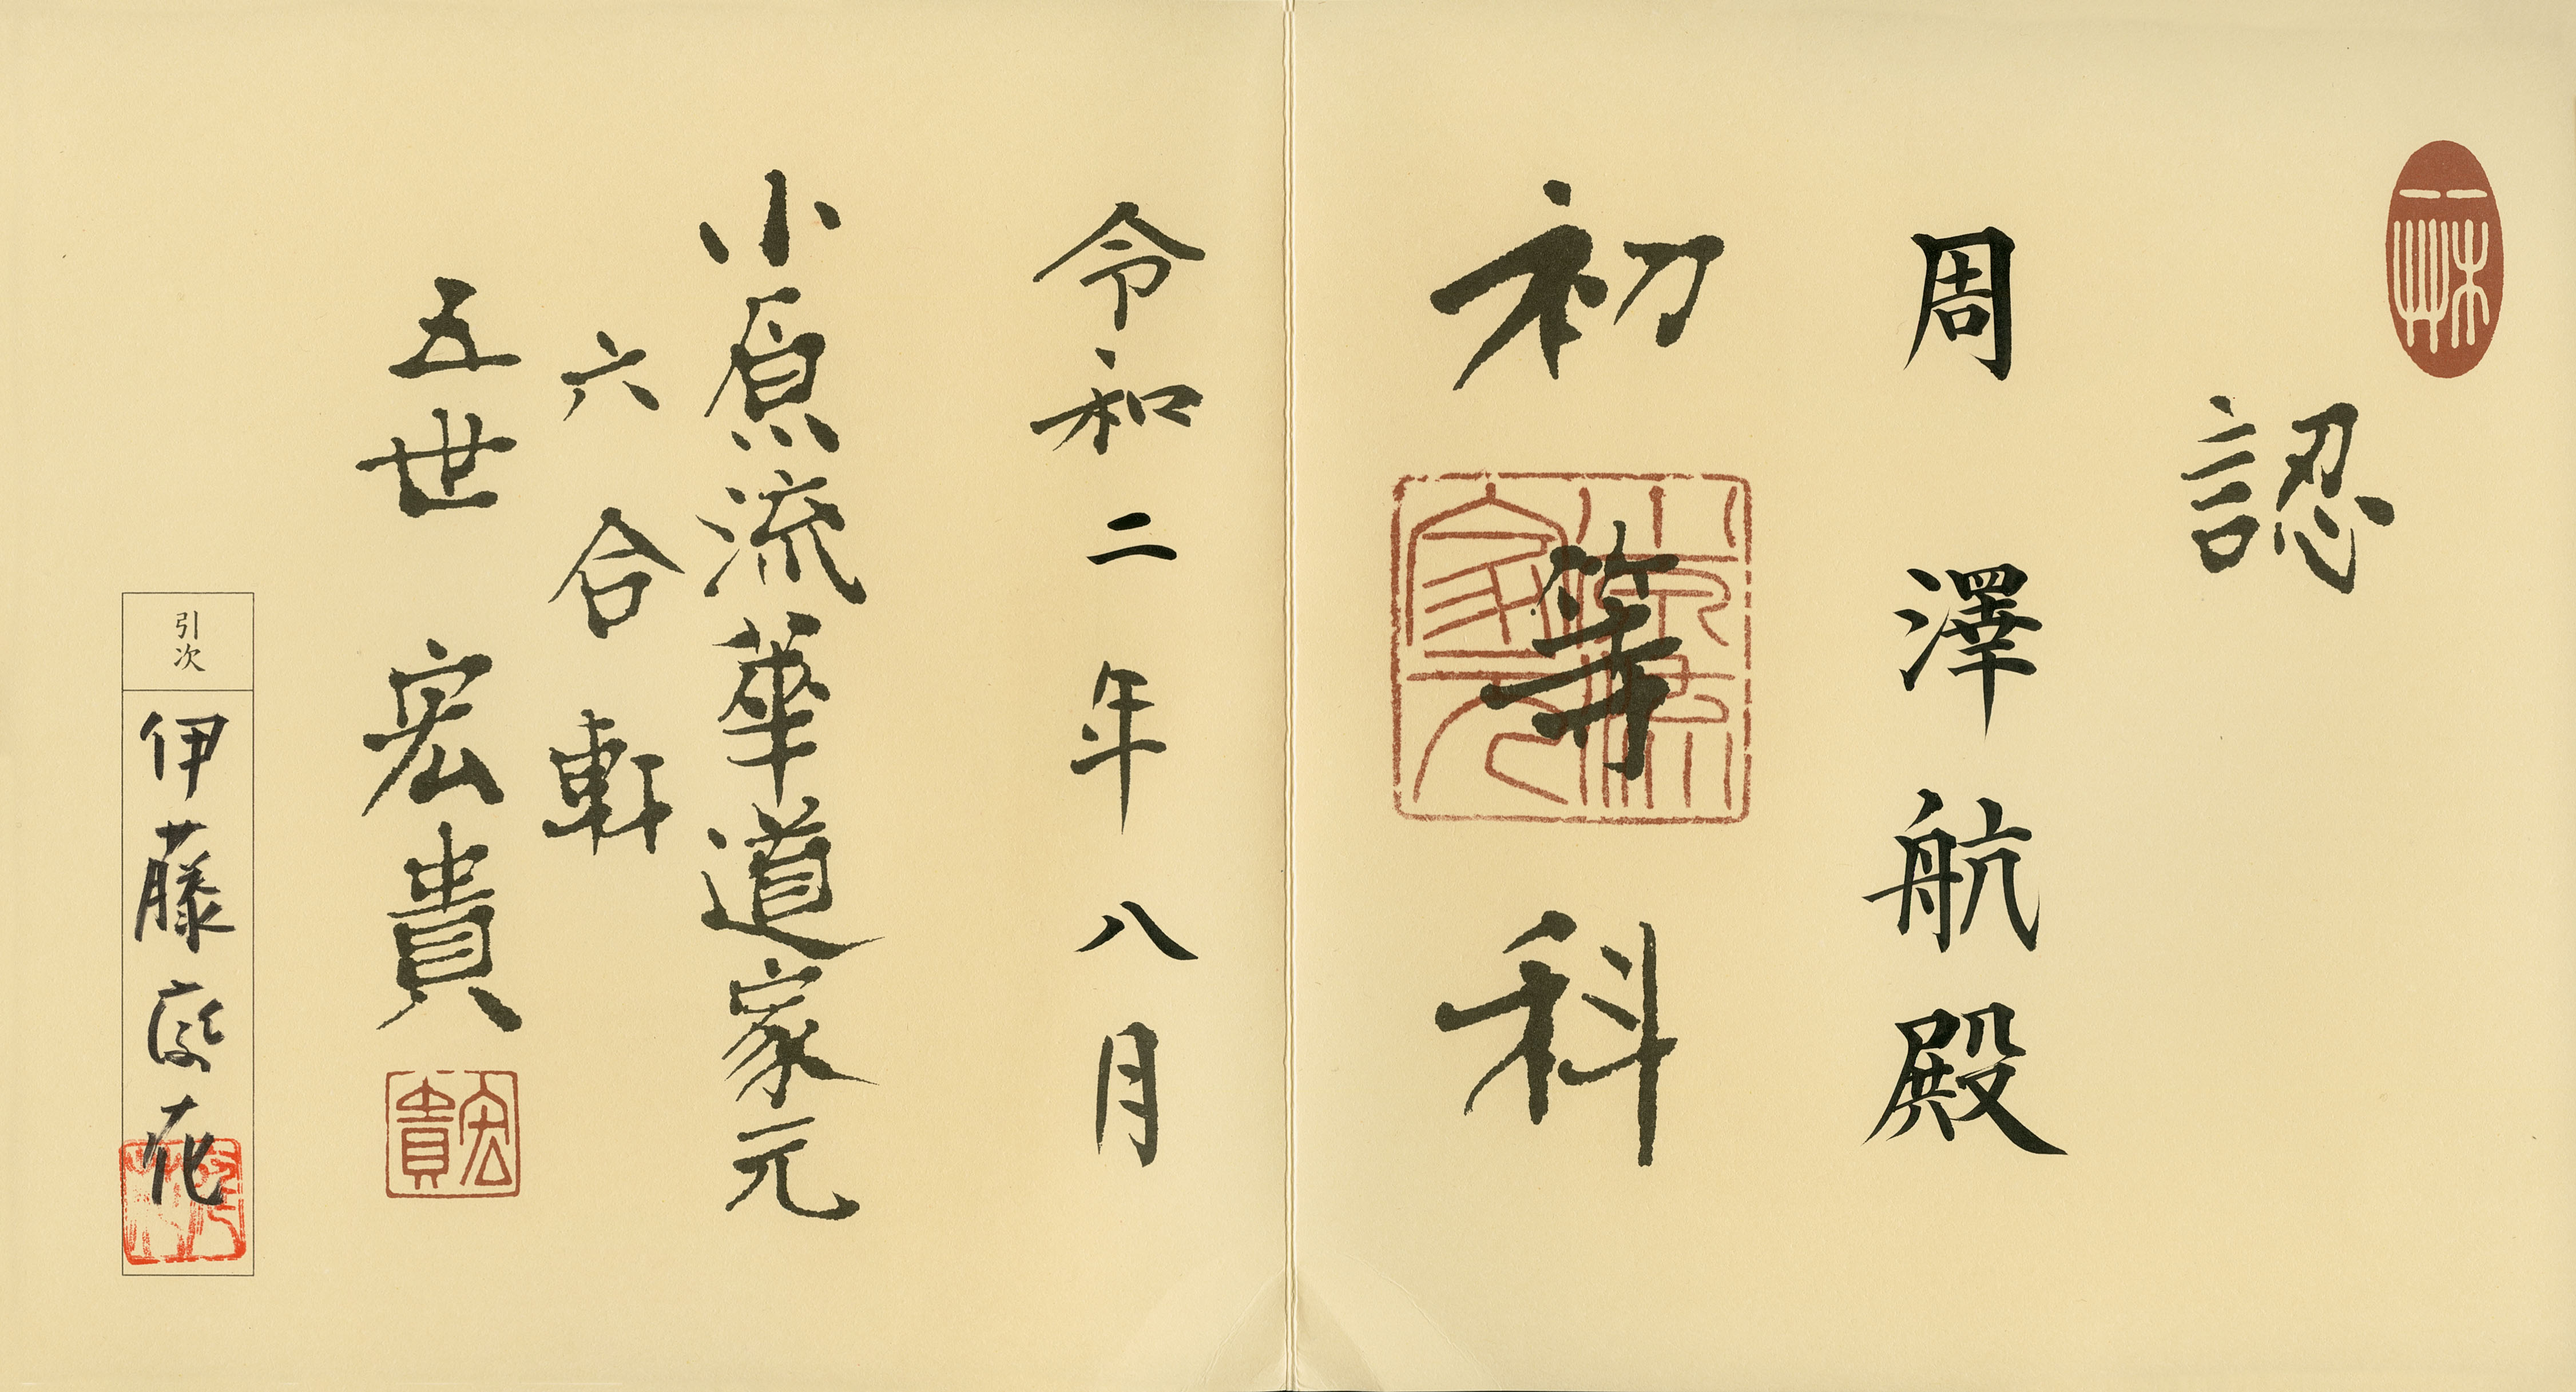 認
周澤航殿
初等科
令和二年八月
小原流華道家元
六合軒
五世 宏貴
宏貴
引次
伊藤 花
小原流家元